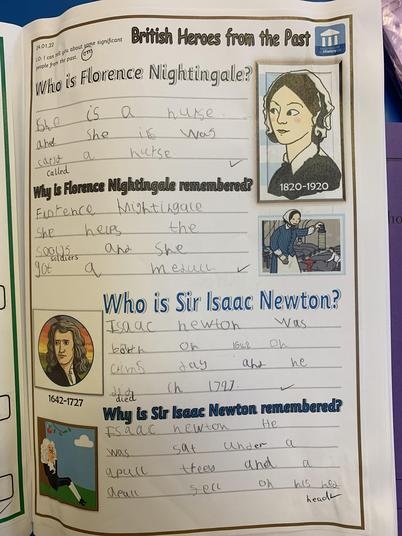 24.01.22
British Heroes from the Past
history
LO: I can tell you about some significant
people from the past.
Who is Florence Nightingale?
She is a nurse.
and She is was
a nurse
called
1820-1920
Why is Florence Nightingale remembered?
Florence Nightingale
She helps the
and She
soldiers
got a medull
Who is Sir Isaac Newton?
Isaac newton was
on 1642 on
day and he
in
died
1642-1727
Why is Sir Isaac Newton remembered?
Isaac newton He
was sat under a
apull trees and a
on his
head